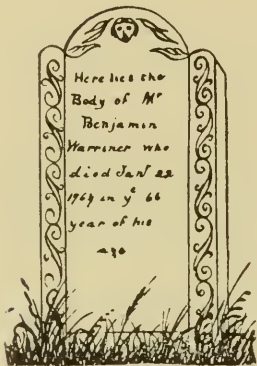 Here lies the
Body of Mr
Benjamin
Warriner who
died Janr 22
1964 in ye 66
year of his
age